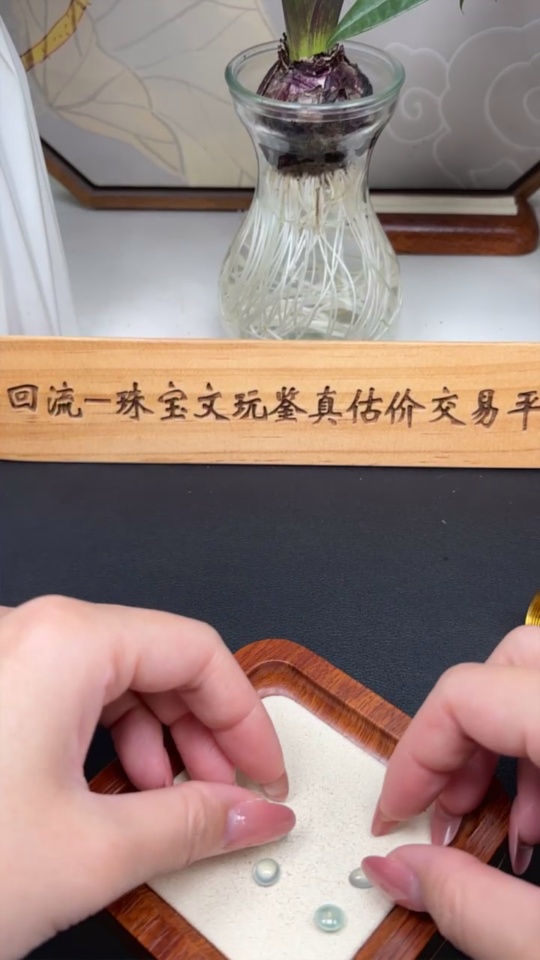 回流一珠宝文玩鉴真估价交易平